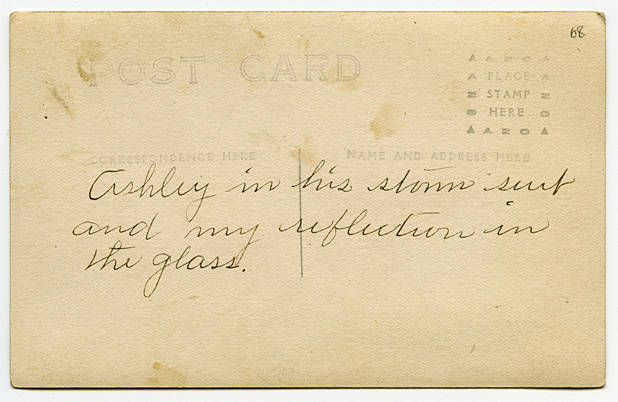 68
POST CARD
AZO
PLACE
STAMP
HERE
AZO
CORRESPONDENCE HERE
NAME AND ADDRESS HERE
Ashley in his storm suit
and my reflection in
the glass.